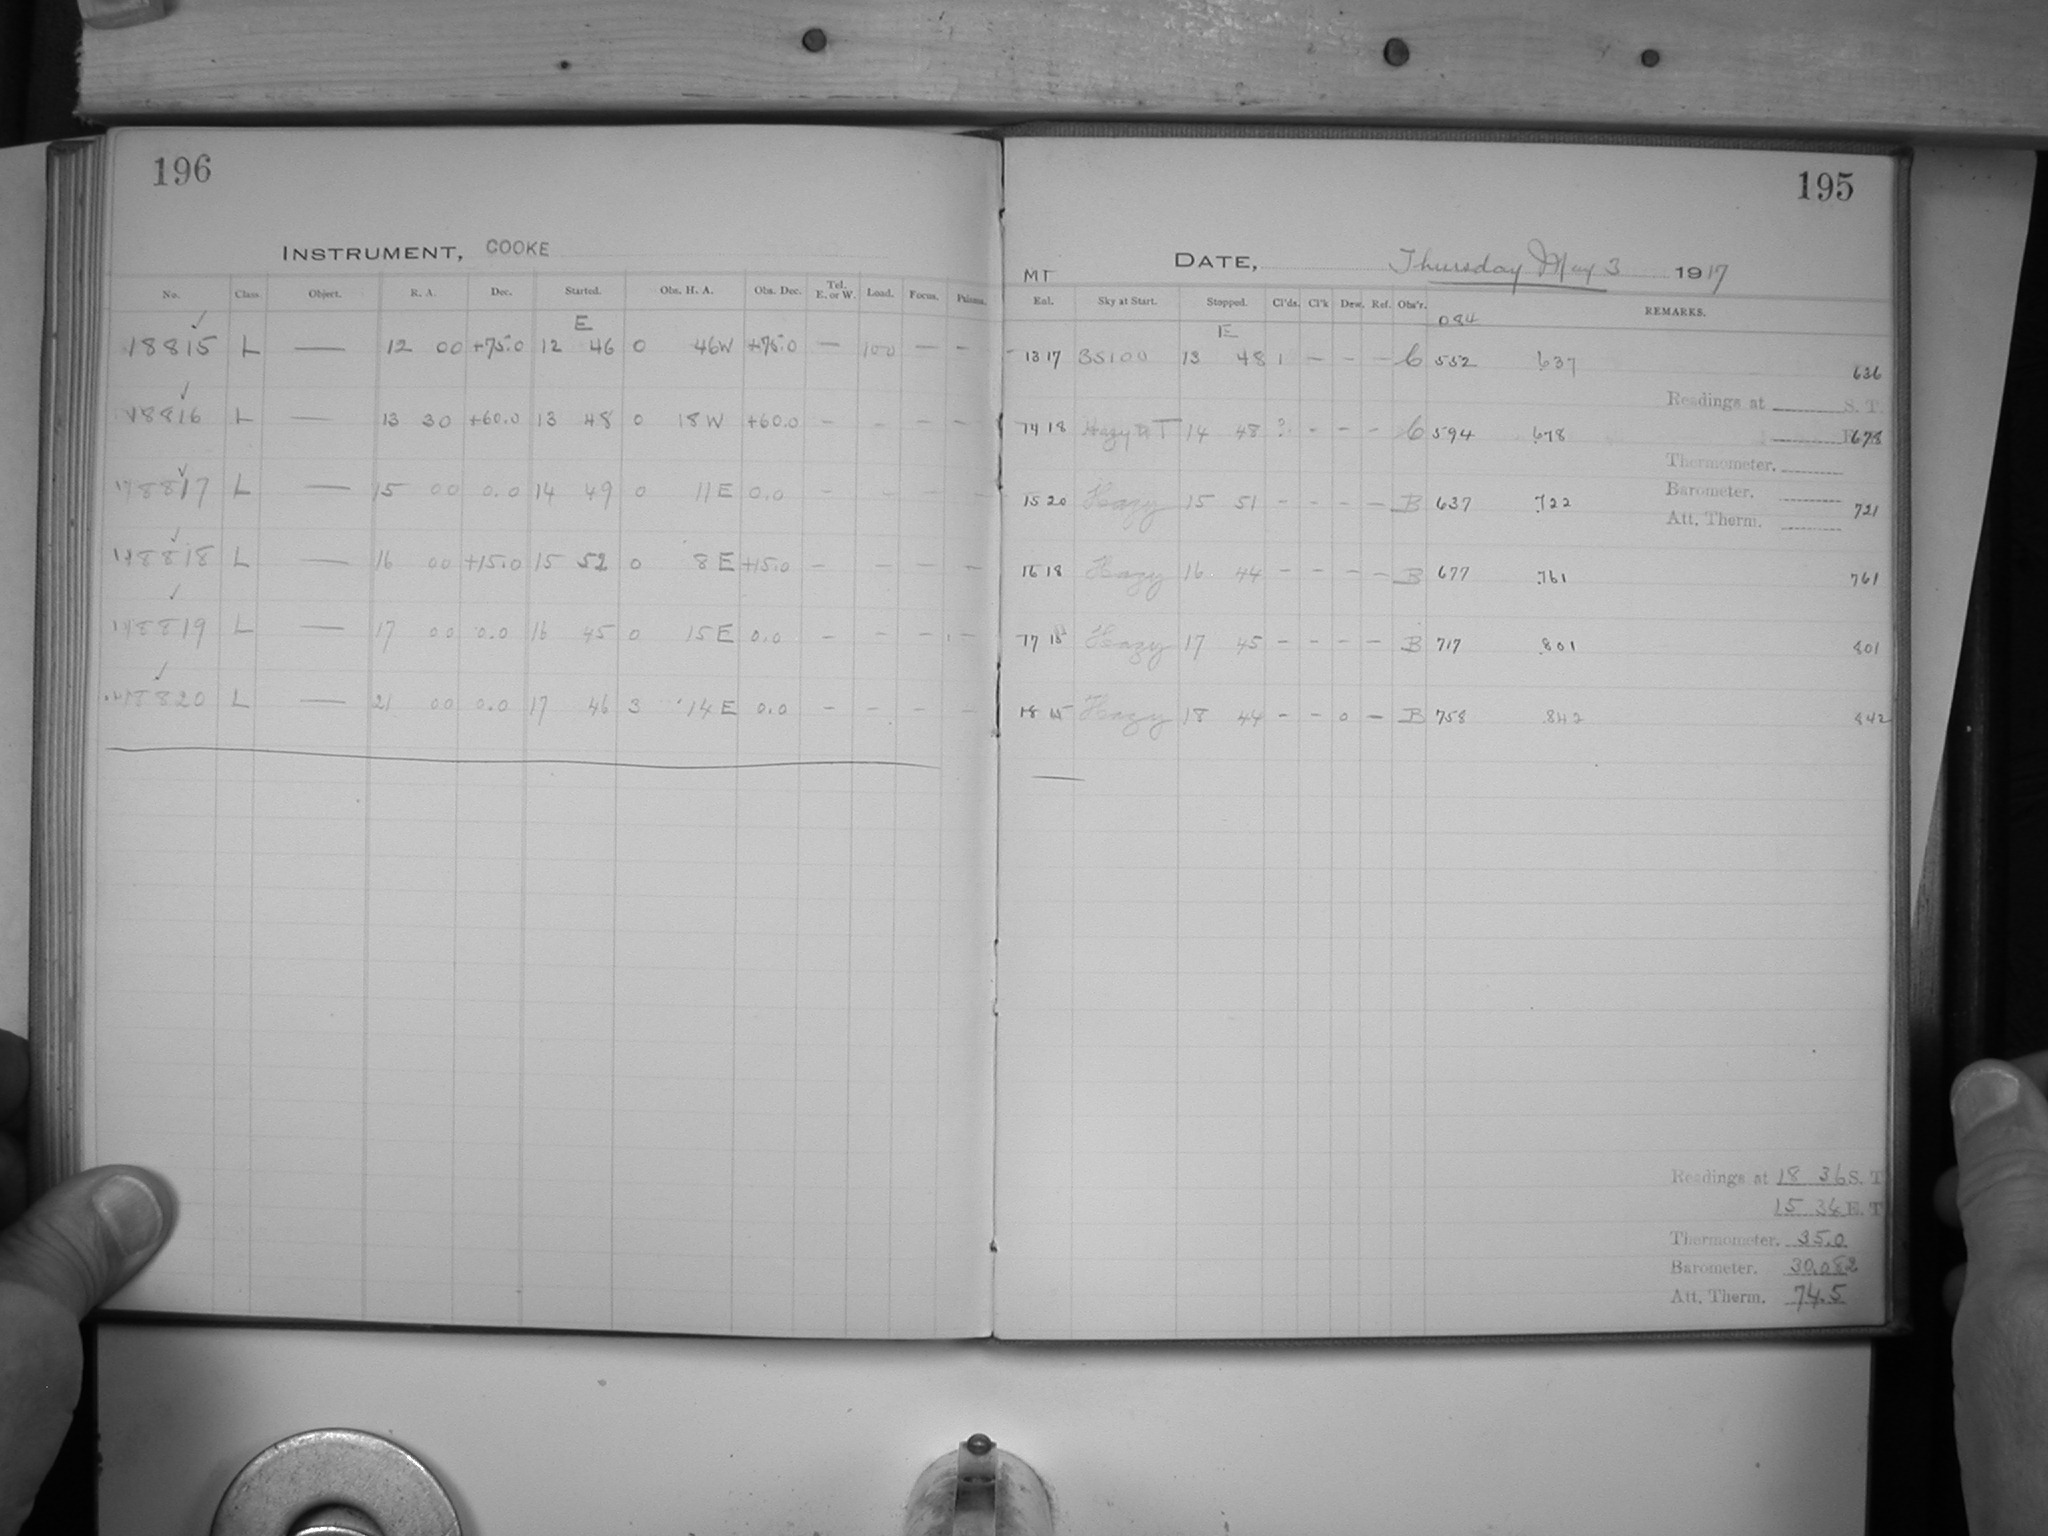 196
INSTRUMENT, COOKE
No. Class Object. R. A. Dec. Started. Obs. H. A. Obs. Dec. Tel. E. or W. Load. Focus.
E
18815 L — 12 00 +75.0 12 46 0 46W +75.0 — 100 — —
18816 L — 13 30 +60.0 13 48 0 18W +60.0 - - - -
18817 L — 15 00 0.0 14 49 0 11E 0.0 - - - -
18818 L — 16 00 +15.0 15 52 0 8E +15.0 - - - -
18819 L — 17 00 0.0 16 45 0 15E 0.0 - - - -
18820 L — 21 00 0.0 17 46 3 14E 0.0 - - - -
195
DATE, Thursday May 3 1917
MT
Eal. Sky at Start. Stopped. Cl'ds. Cl'k Dew. Ref. Obs'r. REMARKS.
084
E
13 17 BS100 13 48 1 - - - C 552 .637 636
Readings at S. T.
14 18 Hazy to T 14 48 ? - - - C 594 .678 678
Thermometer.
Barometer.
15 20 Hazy 15 51 - - - - B 637 .722 721
Att. Therm.
16 18 Hazy 16 44 - - - - B 677 .761 761
17 18 Hazy 17 45 - - - - B 717 .801 801
18 Hazy 18 44 - - 0 - B 758 .842 842
Readings at 18 36 S. T
15 34 E. T
Thermometer. 35.0
Barometer. 30.082
Att. Therm. 74.5